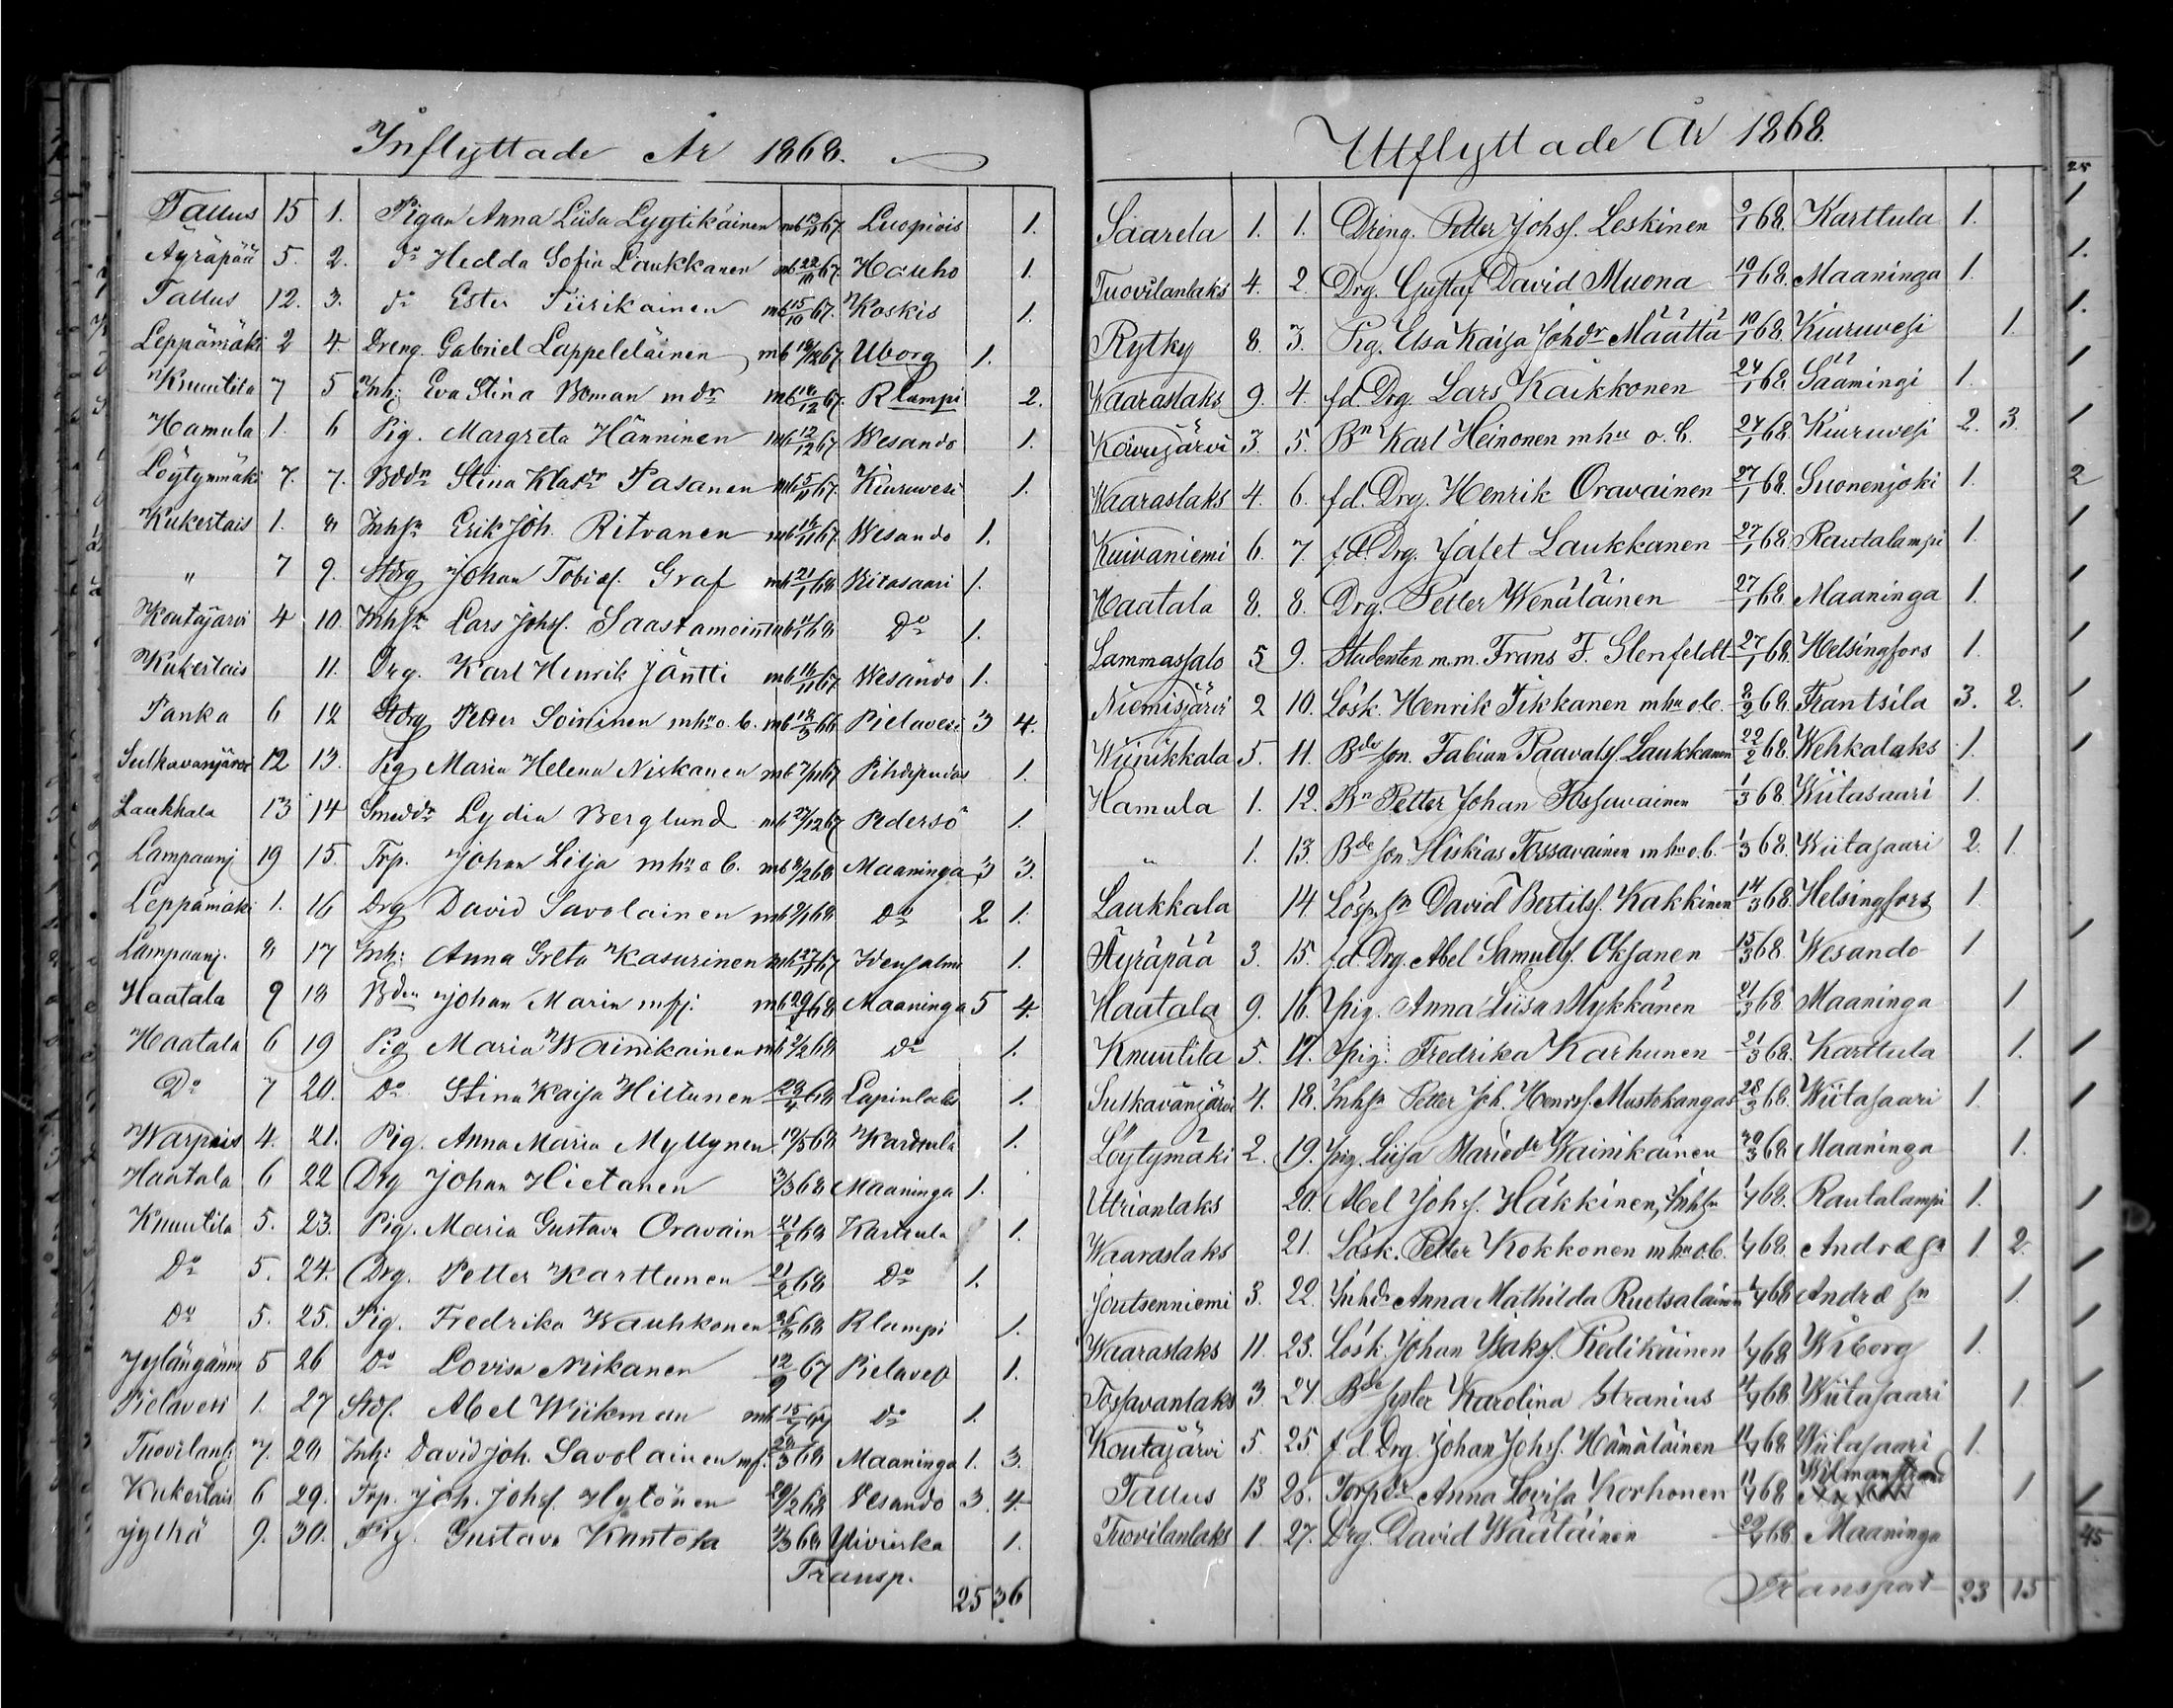 Inflyttade År 1868.
Tallus 15 1. Pigan Anna Liisa Lyytikäinen mb 13/11 67. Luopiois 1.
Äyräpää 5. 2. do Hedda Sofia Laukkanen mb 22/10 67. Hauho 1.
Tallus 12. 3. do Ester Tiirikainen mb 15/10 67. Koskis 1.
Leppämäki 2 4. Dreng. Gabriel Lappeleläinen mb 67 Uborg 1.
Knuutila 7 5 Inh: Eva Stina Boman m dr mb 67. Rlampi 2.
Hamula 1. 6 Pig. Margreta Hänninen mb 12/12 67 Wesando 1.
Löytynmäki 7. 7. Bddr Stina Klasdr Pasanen mb 5/11 67. Kiuruvesi 1.
Kukertais 1. 8 Inhsn Erik Joh. Ritvanen mb 67. Wesando 1.
" 7 9. Stdrg Johan Tobiasf. Graf mb 21/1 68 Witasaari 1.
Koutajärvi 4 10. Inhsn Lars Johsf. Saastamoinen 68 Do 1.
Kukertais 11. Drg. Karl Henrik Jäntti mb 67 Wesando 1.
Panka 6 12 Stdrg Petter Soininen mhu o. b. mb 66 Pielavesi 3 4.
Sulkavanjärvi 12 13. Pig Maria Helena Niskanen mb 67 Pihdipudas 1.
Laukkala 13 14 Smeddr Lydia Berglund mb 27/12 67 Pedersö 1.
Lampaanj 19 15. Trp. Johan Lilja mhu o b. mb 68 Maaninga 3 3.
Leppämäki 1. 16 Drg David Savolainen mb 68. Do 2 1.
Lampaanj. 8 17 Inh: Anna Greta Kasurinen mb 27/11 67 Idensalmi 1.
Haatala 9 18 Bden Johan Marin mfj: mb 68 Maaninga 5 4.
Haatala 6 19 Pig Maria Wainikainen mb 2/2 68 Do 1.
Do 7 20. Do Stina Kaisa Hiltunen 68 Lapinlaks 1.
Warpais 4. 21. Pig. Anna Maria Myllynen 68 Karttula 1.
Haatala 6 22 Drg Johan Hietanen 68 Maaninga 1.
Knuutila 5. 23. Pig. Maria Gustava Oravain 21/2 68 Karttula 1.
Do 5. 24. Drg. Petter Karttunen 21/2 68 Do 1.
Do 5. 25. Pig. Fredrika Wauhkonen 68 Rlampi 1.
Jylängänm 5 26 Do Lovisa Niskanen 12/9 67 Pielaves 1.
Pielavesi 1. 27 Stdf. Abel Wiikman Do 1.
Tuovilanl: 7. 28 Inh: David Joh. Savolainen mf. 68 Maaninga 1. 3.
Kukertais 6 29. Trp. Joh. Johsf. Hytönen 68 Vesando 3 4
Jylhä 9. 30. Pig. Gustava Kantola 68 Ylivieska 1.
Transp. 25 36
Utflyttade År 1868.
Saarela 1. 1. Dreng. Petter Johsf. Leskinen 9/1 68. Karttula 1.
Tuovilanlaks 4. 2. Drg. Gustaf David Muona 19/1 68. Maaninga 1.
Rytky 8. 3. Pig. Elsa Kaisa Johdr Määttä 19/1 68. Kiuruvesi 1.
Waaraslaks 9. 4. fd. Drg. Lars Kaikkonen 24/1 68. Säämingi 1.
Koivujärvi 3. 5. Bn Karl Heinonen mhu o. b. 27/1 68. Kiuruvesi 2. 3.
Waaraslaks 4. 6. fd. Drg. Henrik Oravainen 27/1 68. Suonenjoki 1.
Kuivaniemi 6. 7. fd. Drg. Jafet Laukkanen 27/1 68. Rautalampi 1.
Haatala 8. 8. Drg. Petter Wenäläinen 27/1 68. Maaninga 1.
Lammassalo 5 9. Studenten m.m. Frans F. Glenfeldt 27/1 68. Helsingfors 1.
Niemisjärvi 2 10. Lösk. Henrik Tikkanen mhu o.b. 8/2 68. Frantsila 3. 2.
Wiinikkala 5. 11. Bde son. Fabian Paavalsf. Laukkanen 22/2 68. Wehkalaks 1.
Hamula 1. 12. Bn Petter Johan Tossavainen 1/3 68. Wiitasaari 1.
" 1. 13. Bde son Hiskias Tossavainen mhu o.b. 1/3 68. Wiitasaari 2. 1.
Laukkala 14. David Bertilsf. Kakkinen 14/3 68. Helsingfors 1.
Äyräpää 3. 15. fd. Drg. Abel Samuelsf. Oksanen 15/3 68. Wesando 1
Haatala 9. 16. Pig. Anna Liisa Mykkänen 21/3 68. Maaninga 1
Knuutila 5. 17. Pig. Fredrika Karhunen 21/3 68. Karttula 1.
Sulkavanjärvi 4. 18. Inhsn Petter Joh. Henrsf. Mustokangas 28/3 68. Wiitasaari 1.
Löytymäki 2. 19. Pig. Liisa Mariedr Wainikainen 30/3 68. Maaninga 1.
Utrianlaks 20. Abel Johsf. Häkkinen, Inhsn 1/4 68. Rautalampi 1.
Waaraslaks 21. Lösk. Petter Kokkonen mhu o.b. 1/4 68. Andræ Sn 1. 2.
Joutsenniemi 3. 22. Inhdr Anna Mathilda Ruotsalainen 1/4 68 Andræ Sn 1.
Waaraslaks 11. 23. Lösk. Johan Isaksf. Piedikäinen 1/4 68 Wiborg 1.
Tossavanlaks 3. 24. Bde syster Karolina Stranius 4/4 68. Wiitasaari 1.
Koutajärvi 5. 25. f d. Drg. Johan Johsf. Hämäläinen 11/4 68 Wiitasaari 1.
Tallus 13 26. Torpdr Anna Lovisa Korhonen 11/4 68 Wilmanstrand 1
Tuovilanlaks 1. 27. Drg. David Väätäinen 68 Maaninga
Transport 23 15
25
45